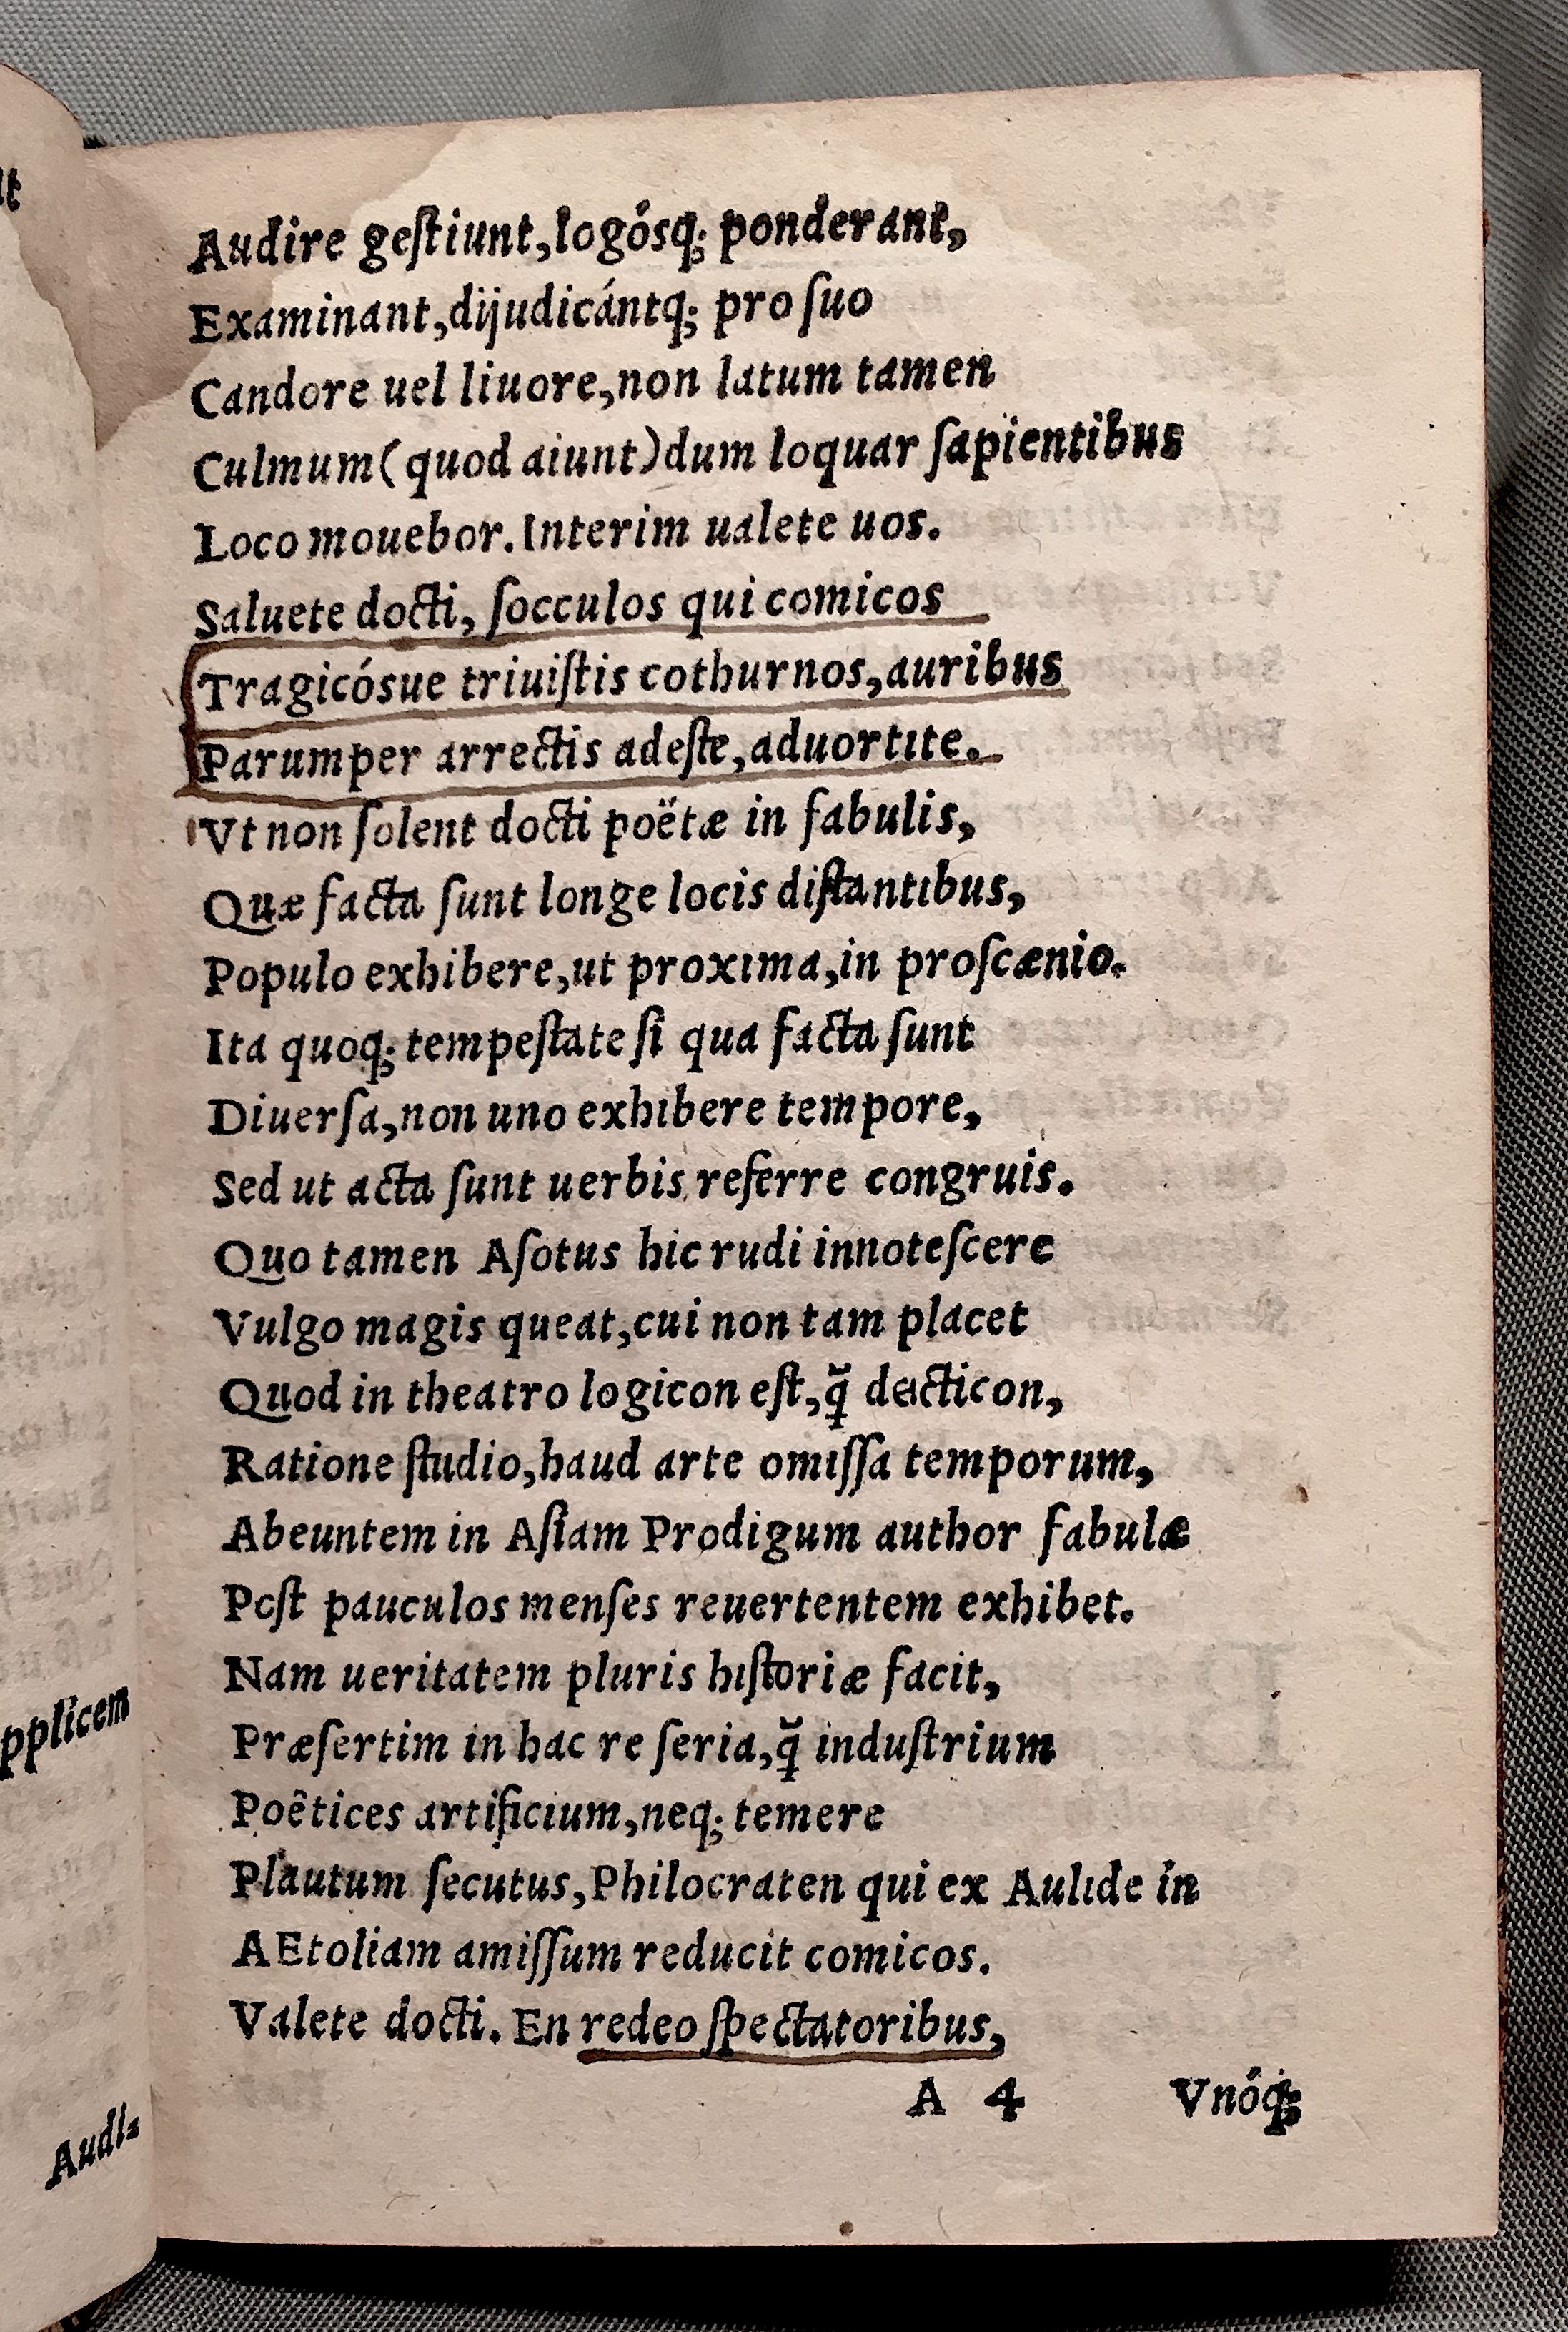 ut
Audire geſtiunt,logósq; ponderant,
Examinant,dijudicántq; pro ſuo
Candore uel liuore,non latum tamen
Culmum(quod aiunt)dum loquar ſapientibus
Loco mouebor.Interim ualete uos.
Saluete docti, ſocculos qui comicos
Tragicósue triuiſtis cothurnos,auribus
Parumper arrectis adeſte,aduortite.
Vt non ſolent docti poëtæ in fabulis,
Quæ facta ſunt longe locis diſtantibus,
Populo exhibere,ut proxima,in proſcænio.
Ita quoq; tempeſtate ſi qua facta ſunt
Diuerſa,non uno exhibere tempore,
Sed ut acta ſunt uerbis referre congruis.
Quo tamen Aſotus hic rudi innoteſcere
Vulgo magis queat,cui non tam placet
Quod in theatro logicon eſt,q̃ dęcticon,
Ratione ſtudio,haud arte omiſſa temporum,
Abeuntem in Aſiam Prodigum author fabulæ
Poſt pauculos menſes reuertentem exhibet.
Nam ueritatem pluris hiſtoriæ facit,
Præſertim in hac re ſeria,q̃ induſtrium
Poêtices artificium,neq; temere
Plautum ſecutus,Philocraten qui ex Aulide in
AEtoliam amiſſum reducit comicos.
Valete docti. En redeo ſpectatoribus,
A 4 Vnóq;
pplicem
Audi⸗